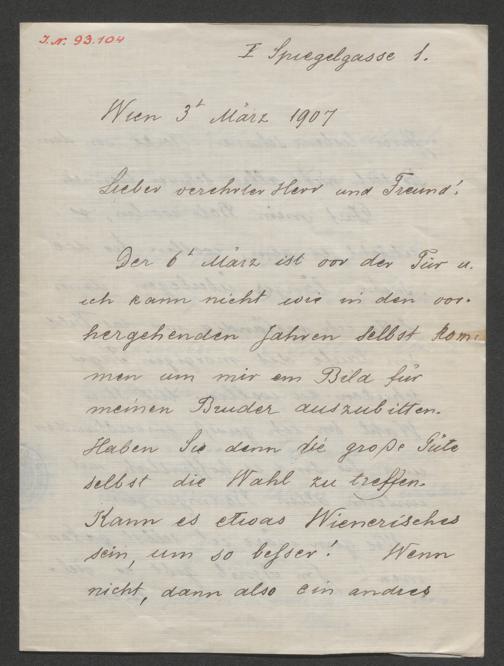 I.N. 93.104
I Spiegelgasse 1.
Wien 3t März 1907
Lieber verehrter Herr und Freund!
Der 6t März ist vor der Tür u.
ich kann nicht wie in den vor-
hergehenden Jahren selbst kom-
men um mir ein Bild für
meinen Bruder auszubitten.
Haben Sie denn die große Güte
selbst die Wahl zu treffen.
Kann es etwas Wienerisches
sein, um so beßer! Wenn
nicht, dann also ein andres